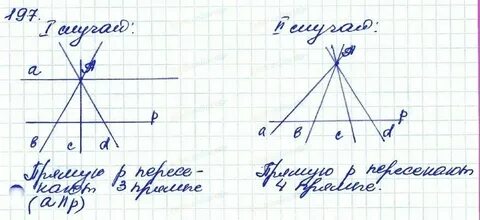 197.
I случай:
II случай:
A
A
a
p
b
c
d
p
a
b
c
d
Прямую p пересе-
кают 3 прямые
(a||p)
Прямую p пересекают
4 прямые.